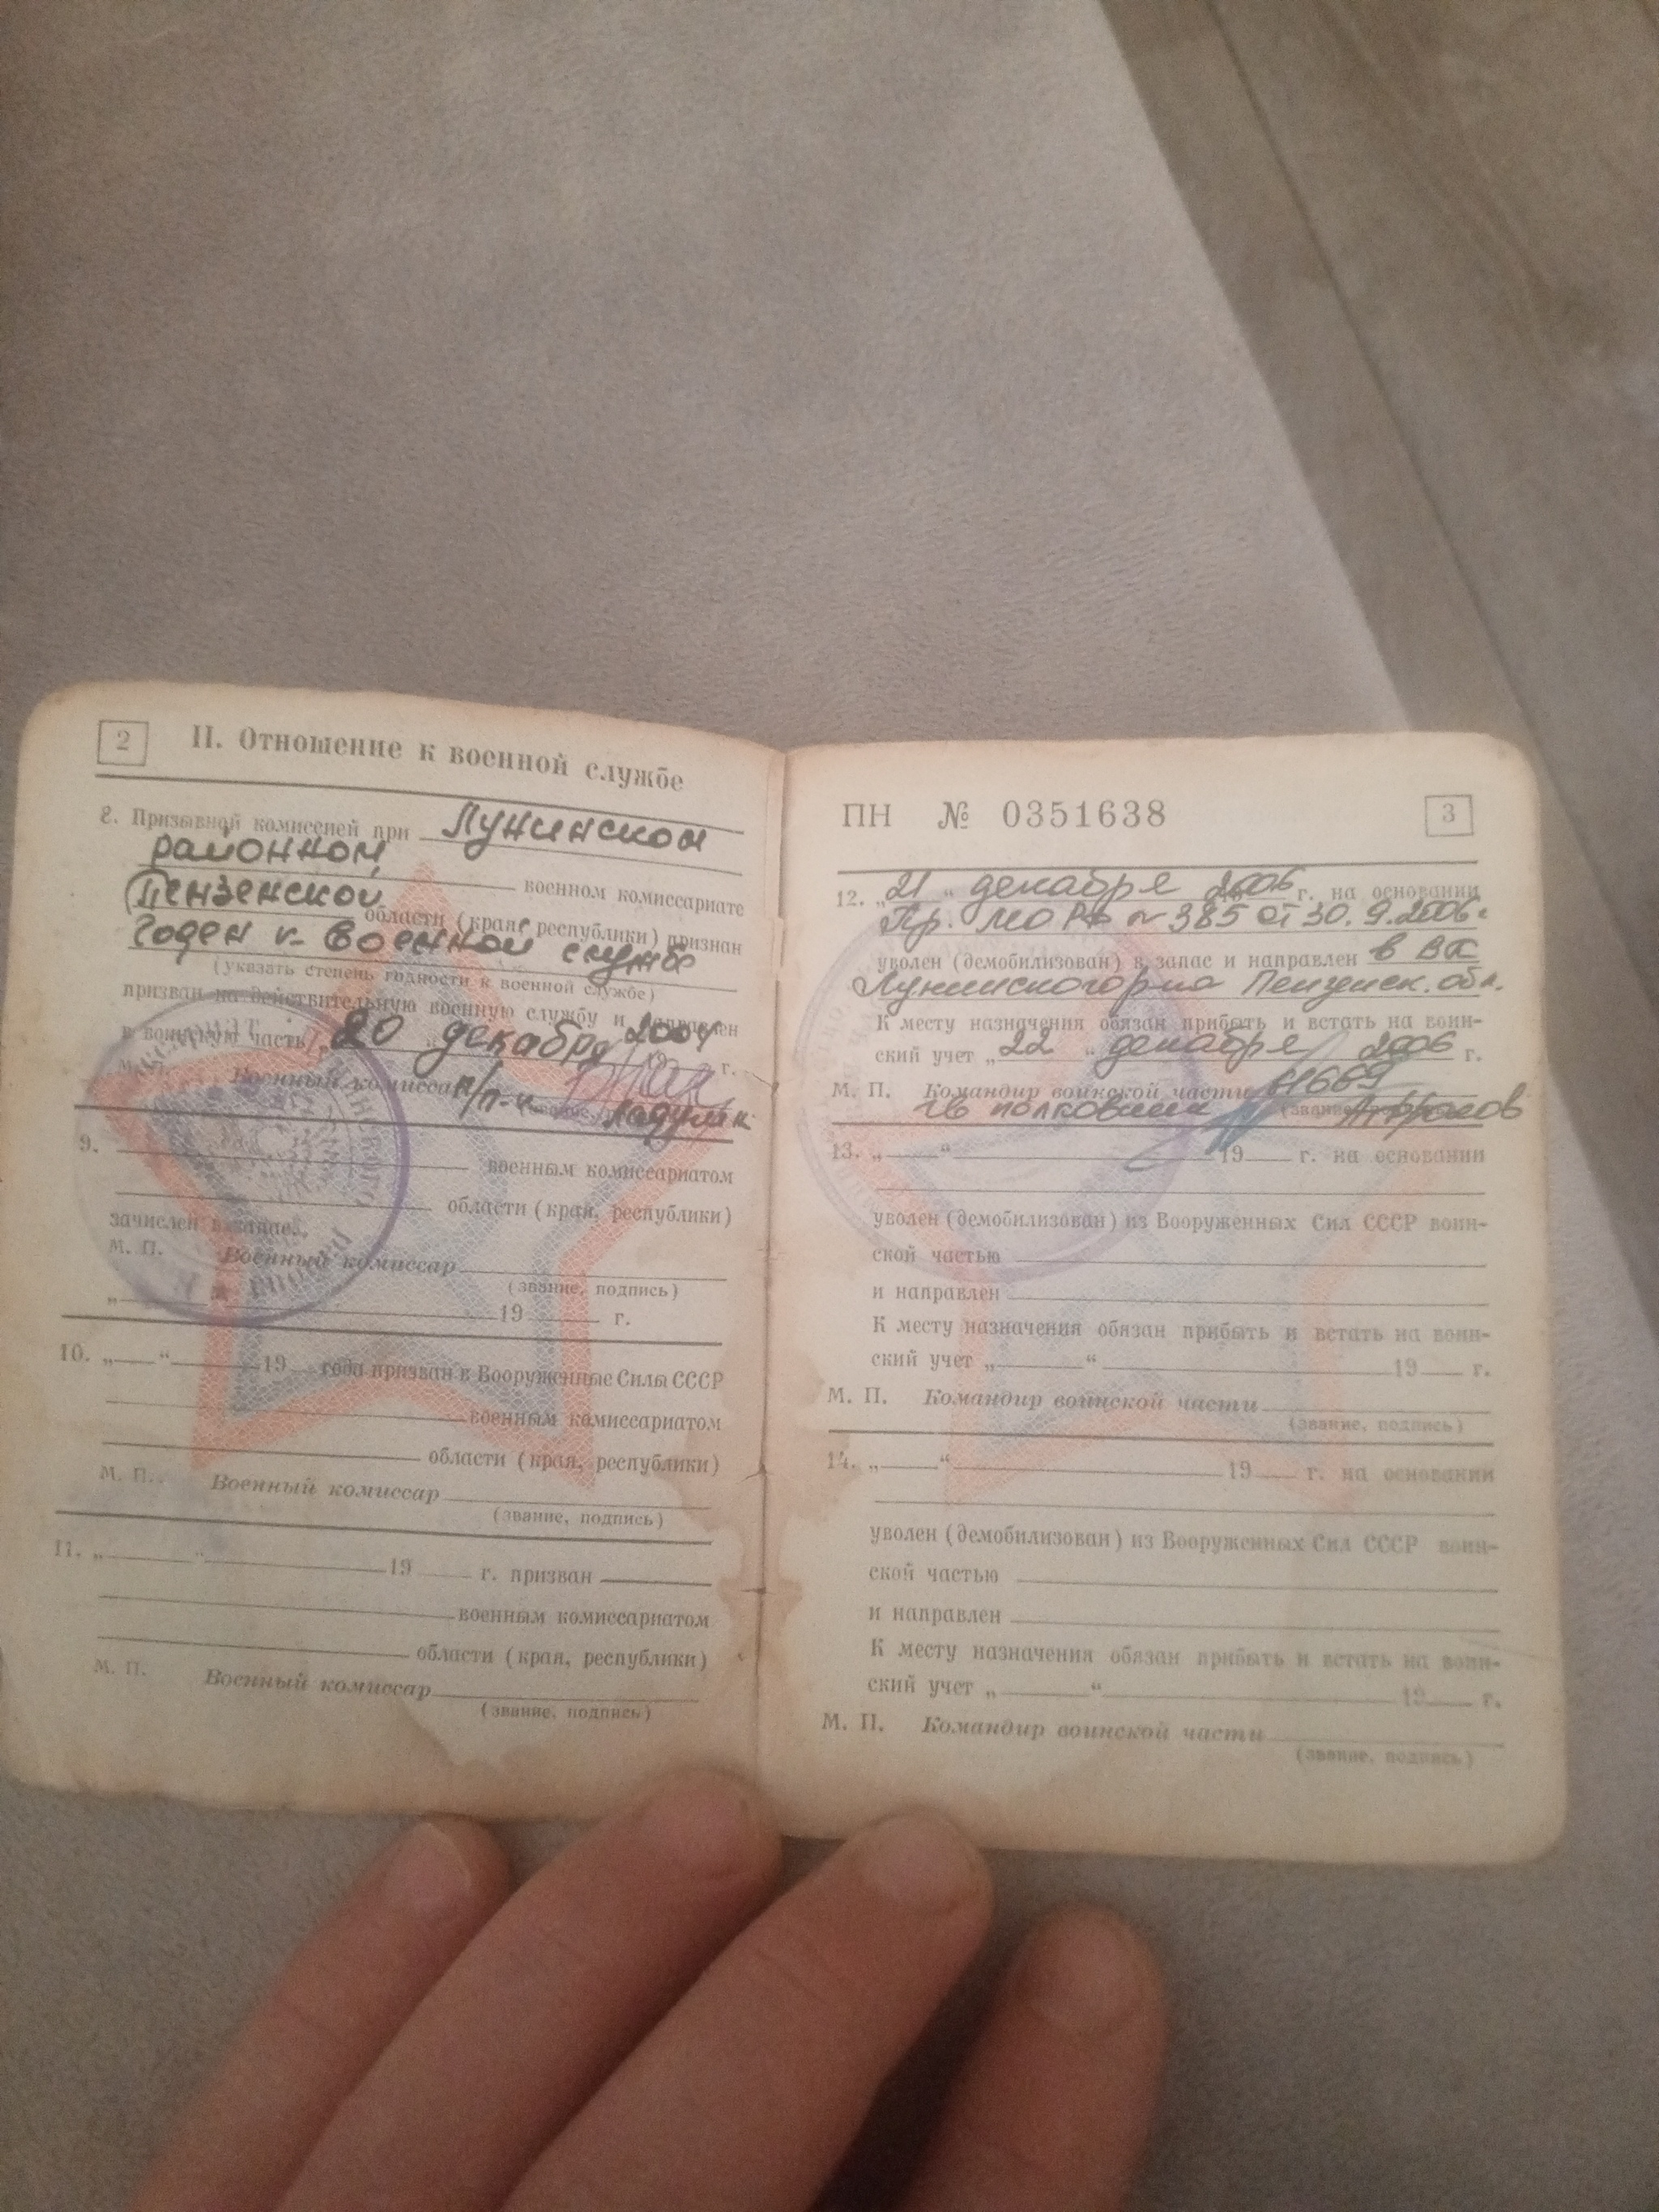 2
II. Отношение к военной службе
8. Призывной комиссией при Лунинском
районном
военном комиссариате
Пензенской области (края, республики) признан
годен к военной службе
(указать степень годности к военной службе)
призван на действительную военную службу и направлен
в воинскую часть 20 декабря 2004 г.
М. П. Военный комиссар п/п-к
9. военным комиссариатом
области (край, республики)
зачислен в запас.
М. П. Военный комиссар
(звание, подпись)
„ “ 19 г.
10. „ “ 19 года призван в Вооруженные Силы СССР
военным комиссариатом
области (края, республики)
М. П. Военный комиссар
(звание, подпись)
11. „ “ 19 г. призван
военным комиссариатом
области (края, республики)
М. П. Военный комиссар
(звание, подпись)
ПН № 0351638
3
12. „21“ декабря 2006 г. на основании
Пр. МО РФ № 385 от 30.9.2006г
уволен (демобилизован) в запас и направлен в ВК
Лунинского р-на Пензенск. обл.
К месту назначения обязан прибыть и встать на воин-
ский учет „22“ декабря 2006 г.
М. П. Командир воинской части 61669
гв полковник
13. „ “ 19 г. на основании
уволен (демобилизован) из Вооруженных Сил СССР воин-
ской частью
и направлен
К месту назначения обязан прибыть и встать на воин-
ский учет „ “ 19 г.
М. П. Командир воинской части
(звание, подпись)
14. „ “ 19 г. на основании
уволен (демобилизован) из Вооруженных Сил СССР воин-
ской частью
и направлен
К месту назначения обязан прибыть и встать на воин-
ский учет „ “ 19 г.
М. П. Командир воинской части
(звание, подпись)